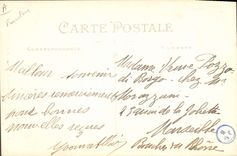 CARTE POSTALE
CORRESPONDANCE
ADRESSE
Meilleur souvenir
Sincères remerciements
pour bonnes
nouvelles reçues
Madame Veuve Pozzo
di Borgo chez Mr
25 de la Joliette
Marseille
Bouches du Rhône